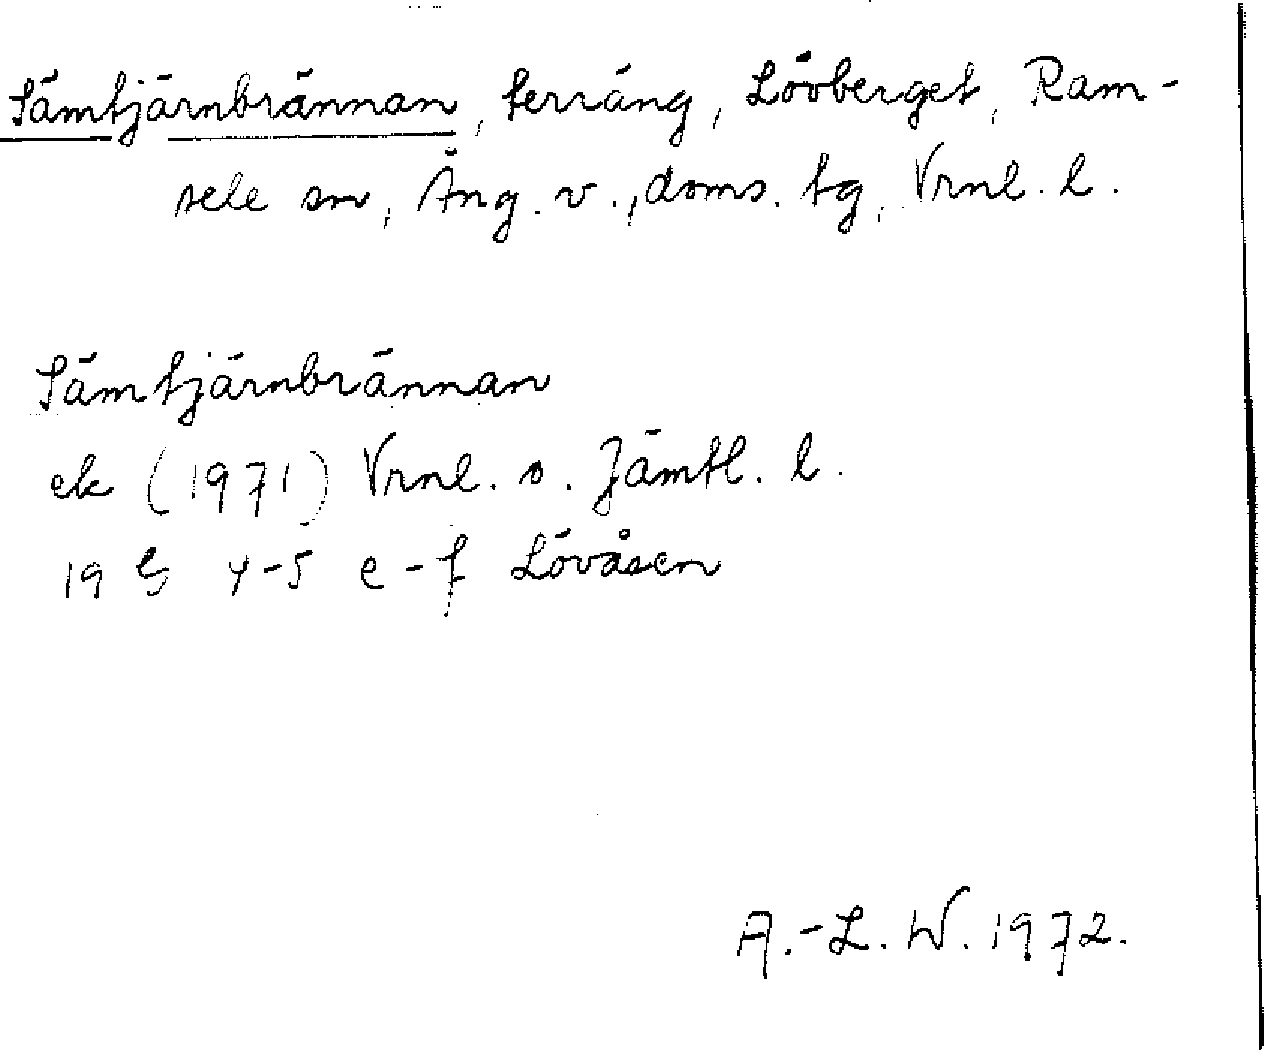 Sämtjärnbrännan, terräng, Lövberget, Ram-
sele sn, Ång. v., doms. tg, Vrnl. l.
Sämtjärnbrännan
ek (1971) Vrnl. o. Jämtl. l.
19 G 4-5 e-f Lövåsen
A.-L. W. 1972.